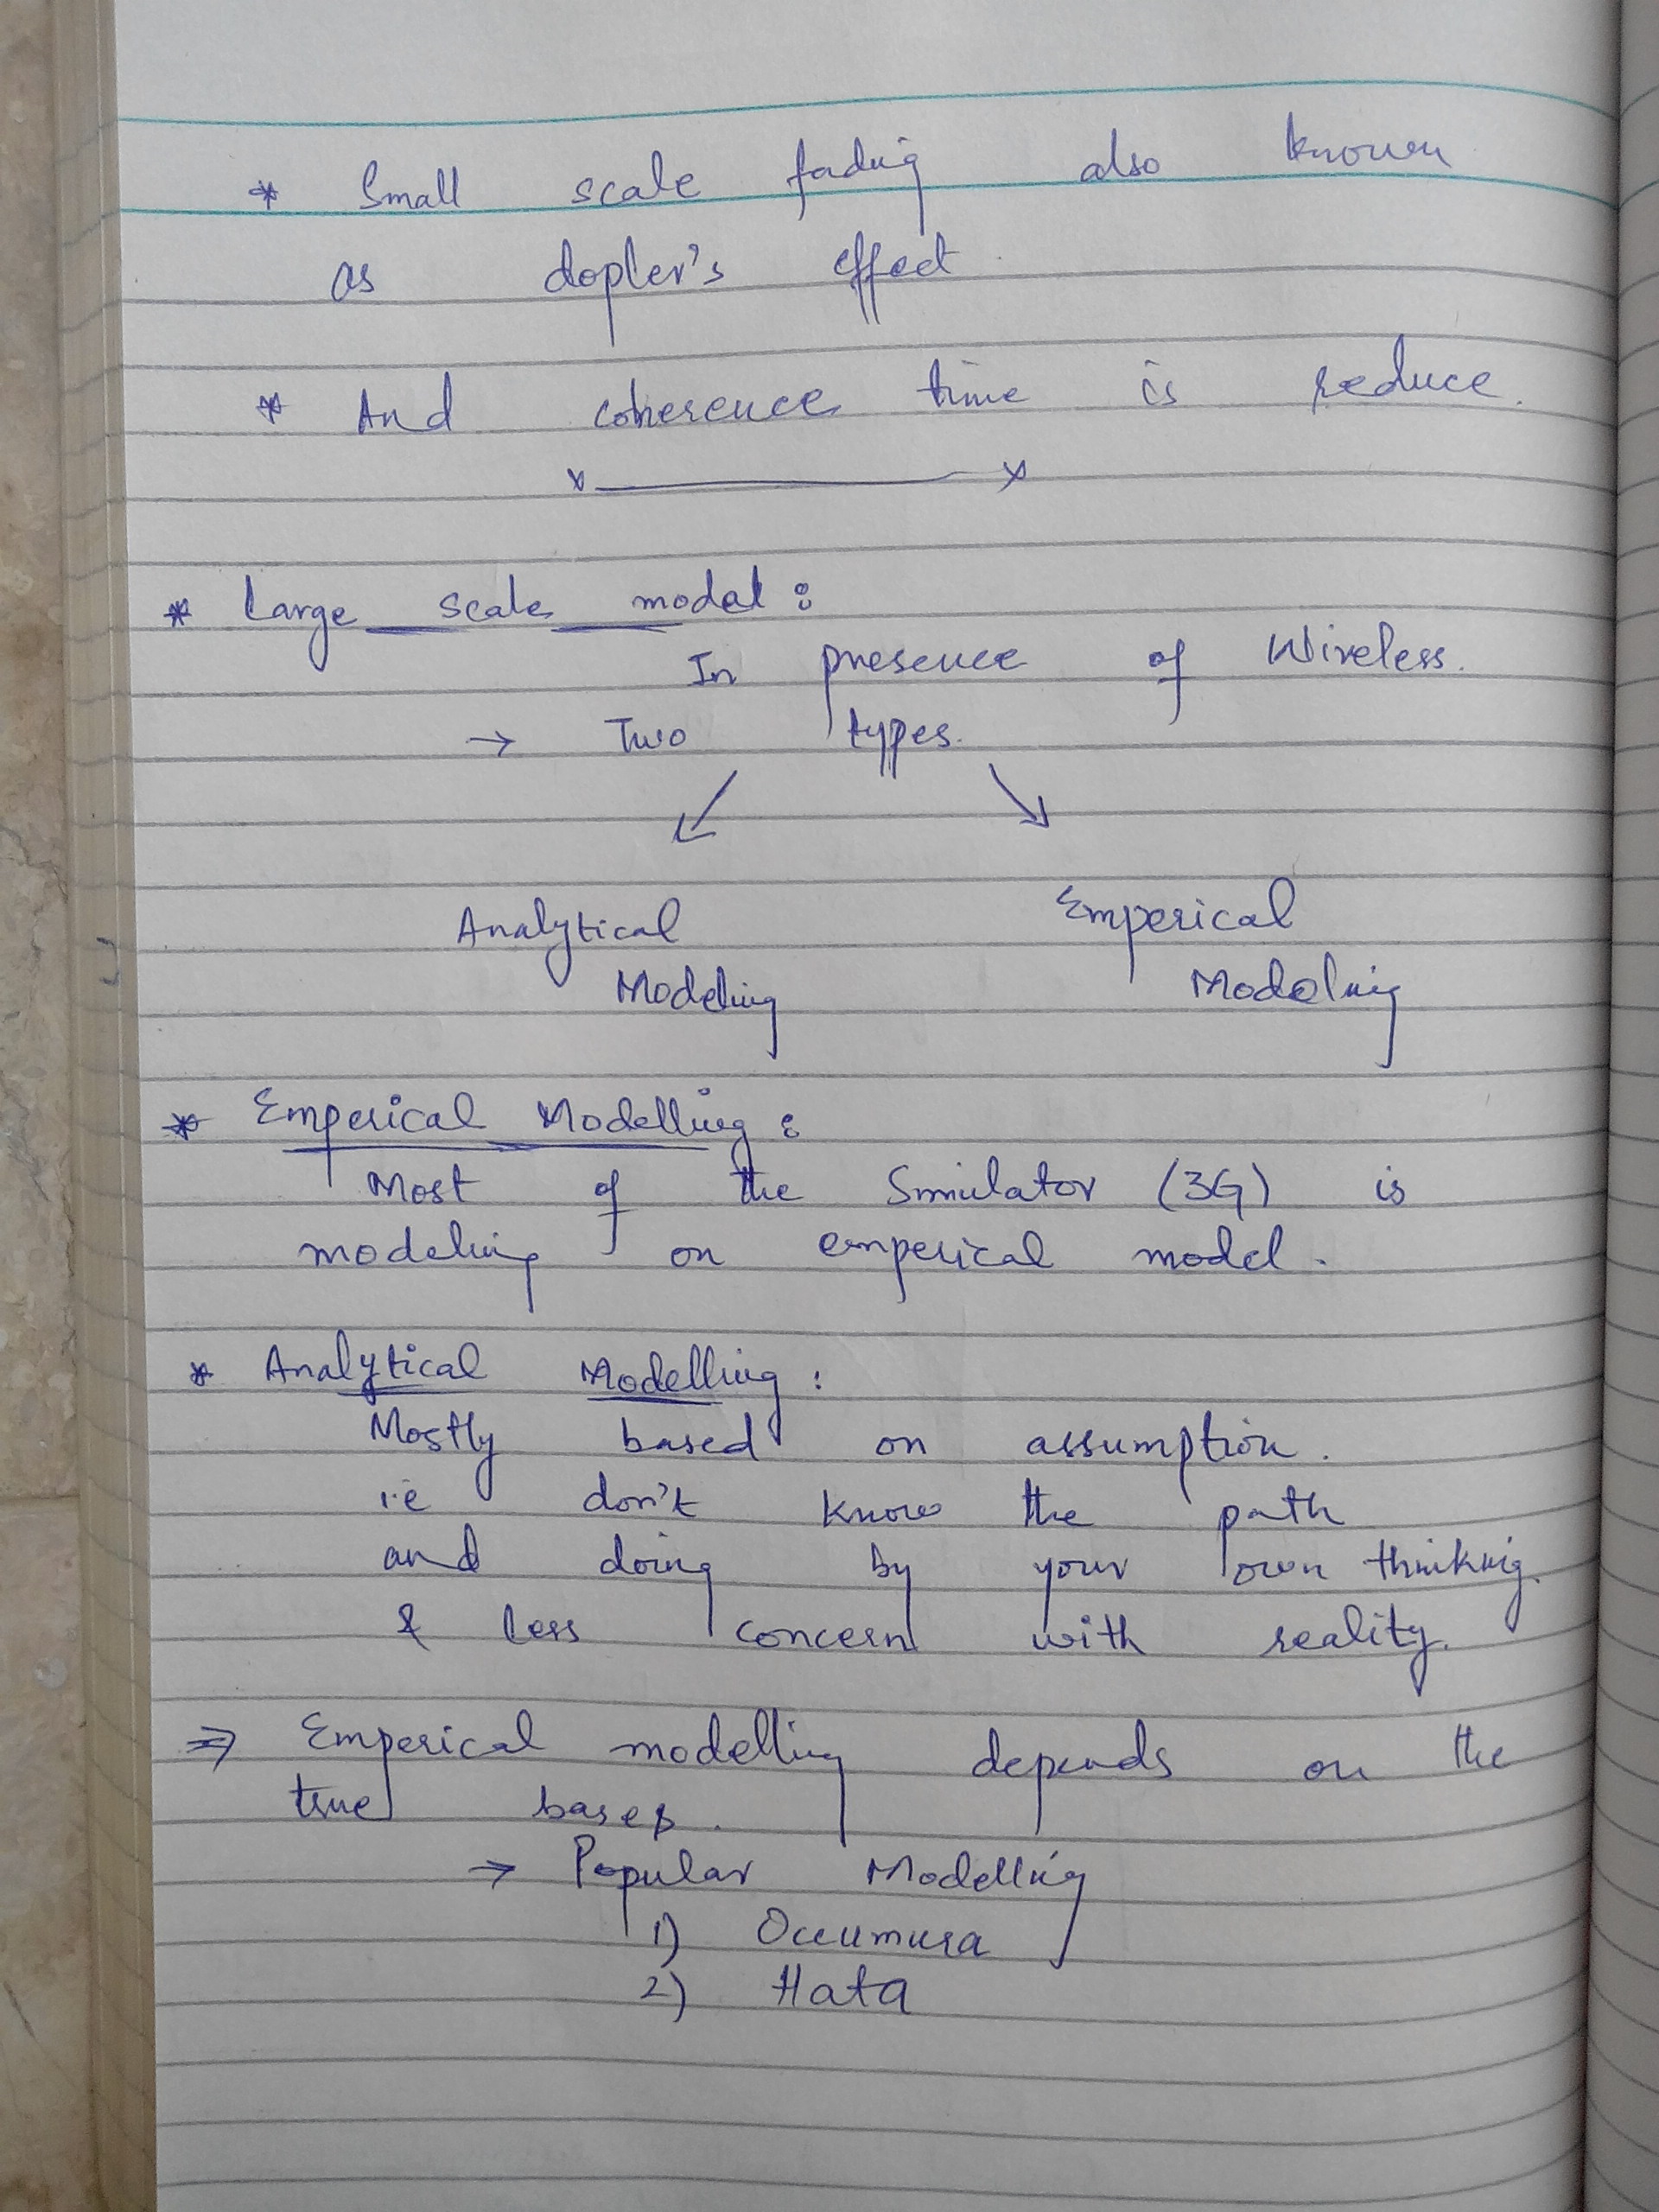 * Small scale fading also known
as dopler's effect
* And coherence time is reduce.
x———x
* Large scale model:
In presence of Wireless.
→ Two types.
Analytical Emperical
Modeling Modeling
* Emperical Modelling:
Most of the Simulator (3G) is
modeling on emperical model.
* Analytical Modelling:
Mostly based on assumption.
i.e don't know the path
and doing by your own thinking.
& less concern with reality.
⇒ Emperical modelling depends on the
true bases.
→ Popular Modelling
1) Occumura
2) Hata